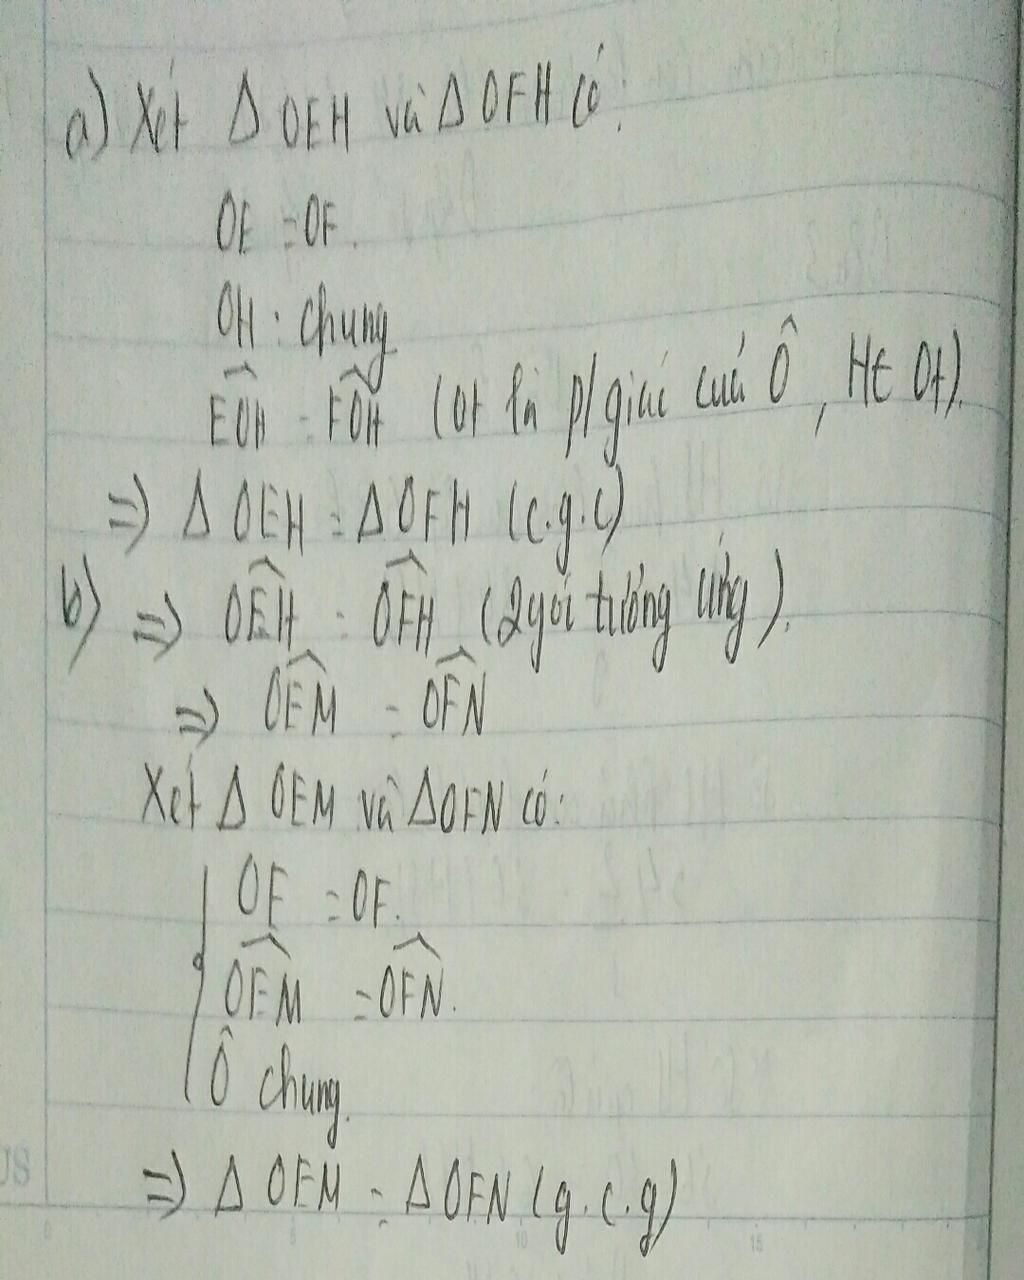 a) Xét Δ OEH và Δ OFH có:
OE = OF.
OH : chung
$\widehat{EOH}$ = $\widehat{FOH}$ (Ot là p/giác của Ô, H∈ Ot).
=> Δ OEH = Δ OFH (c.g.c)
b) => $\widehat{OEH}$ = $\widehat{OFH}$ (2 góc tương ứng).
=> $\widehat{OEM}$ = $\widehat{OFN}$
Xét Δ OEM và Δ OFN có:
OE = OF.
$\widehat{OEM}$ = $\widehat{OFN}$.
Ô chung.
=> Δ OEM = Δ OFN (g.c.g)
0 5 10 15